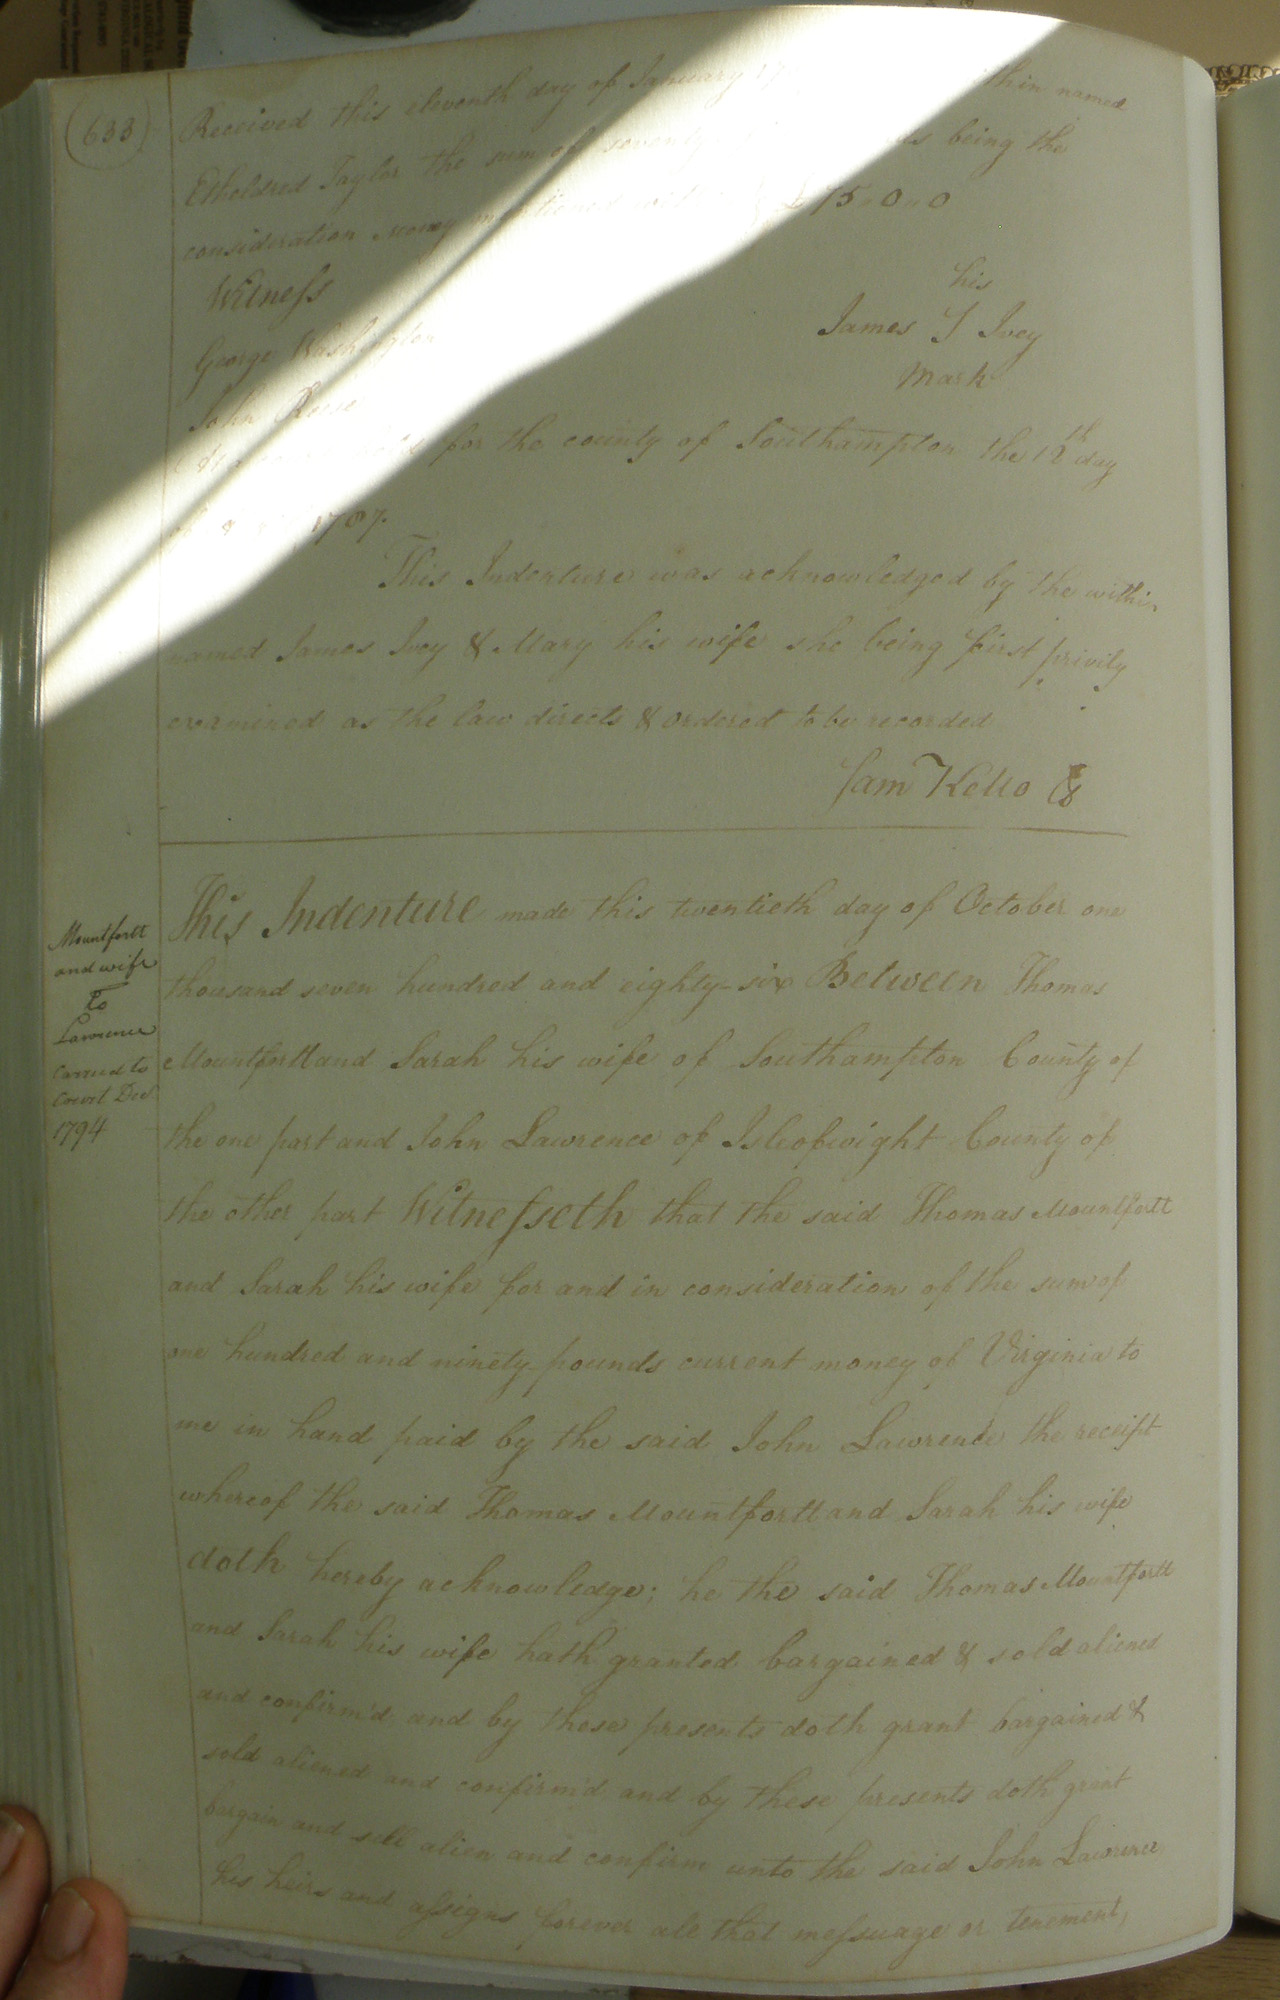 (633)
Received this eleventh day of January 17 thin named
Etheldred Taylor the sum of seventy being the
consideration money mentioned £75.0.0
Witness
his
George Washington
James I Ivey
John Rose
Mark
for the county of Southampton the 12th day
1787.
This Indenture was acknowledged by the within
named James Ivey & Mary his wife she being first privily
examined as the law directs & ordered to be recorded
Sam Kello
Mountfortt
and wife
To
Lawrence
carried to
court Dec
1794
This Indenture made this twentieth day of October one
thousand seven hundred and eighty-six Between Thomas
Mountfortt and Sarah his wife of Southampton County of
the one part and John Lawrence of Isleofwight County of
the other part Witnesseth that the said Thomas Mountfortt
and Sarah his wife for and in consideration of the sum of
one hundred and ninety pounds current money of Virginia to
me in hand paid by the said John Lawrence the receipt
whereof the said Thomas Mountfortt and Sarah his wife
doth hereby acknowledge; he the said Thomas Mountfortt
and Sarah his wife hath granted bargained & sold aliened
and confirm'd and by these presents doth grant bargained &
sold aliened and confirm'd and by these presents doth grant
bargain and sell alien and confirm unto the said John Lawrence
his heirs and assigns forever all that messuage or tenement,